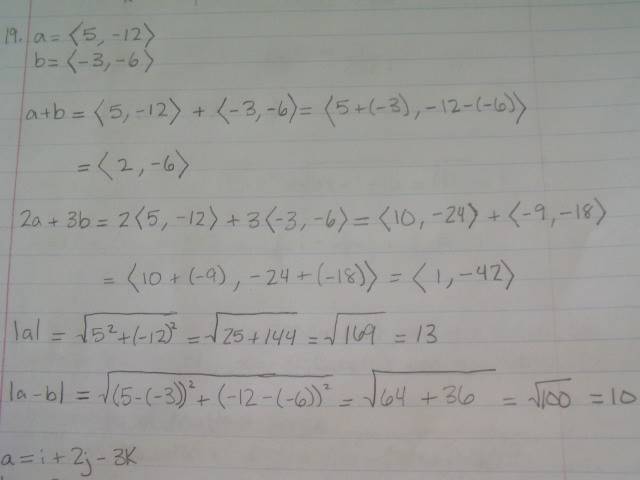 19. a = ⟨5, -12⟩
b = ⟨-3, -6⟩
a+b = ⟨5, -12⟩ + ⟨-3, -6⟩ = ⟨5+(-3), -12-(-6)⟩
= ⟨2, -6⟩
2a + 3b = 2⟨5, -12⟩ + 3⟨-3, -6⟩ = ⟨10, -24⟩ + ⟨-9, -18⟩
= ⟨10 + (-9), -24+(-18)⟩ = ⟨1, -42⟩
|a| = √(5²+(-12)²) = √(25+144) = √169 = 13
|a-b| = √((5-(-3))² + (-12-(-6))²) = √(64 + 36) = √100 = 10
a = i + 2j - 3k